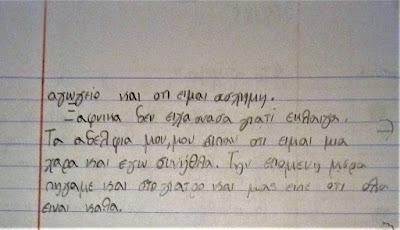 αγωγείο και οτι ειμαι ασχημη.
Ξαφνικα δεν ειχα ανασα γιατί εκλαιγα.
Τα αδελφια μου, μου ειπαν οτι ειμαι μια
χαρα και εγω συνήθλα. Την επομενη μερα
πηγαμε και στο γιατρο και μας ειπε οτι ολα
ειναι καλα.